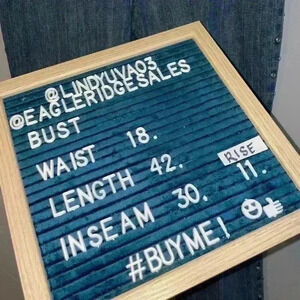 @LINDYUVA03
@EAGLERIDGESALES
BUST
WAIST 18.
LENGTH 42. RISE
INSEAM 30. 11.
#BUYME!